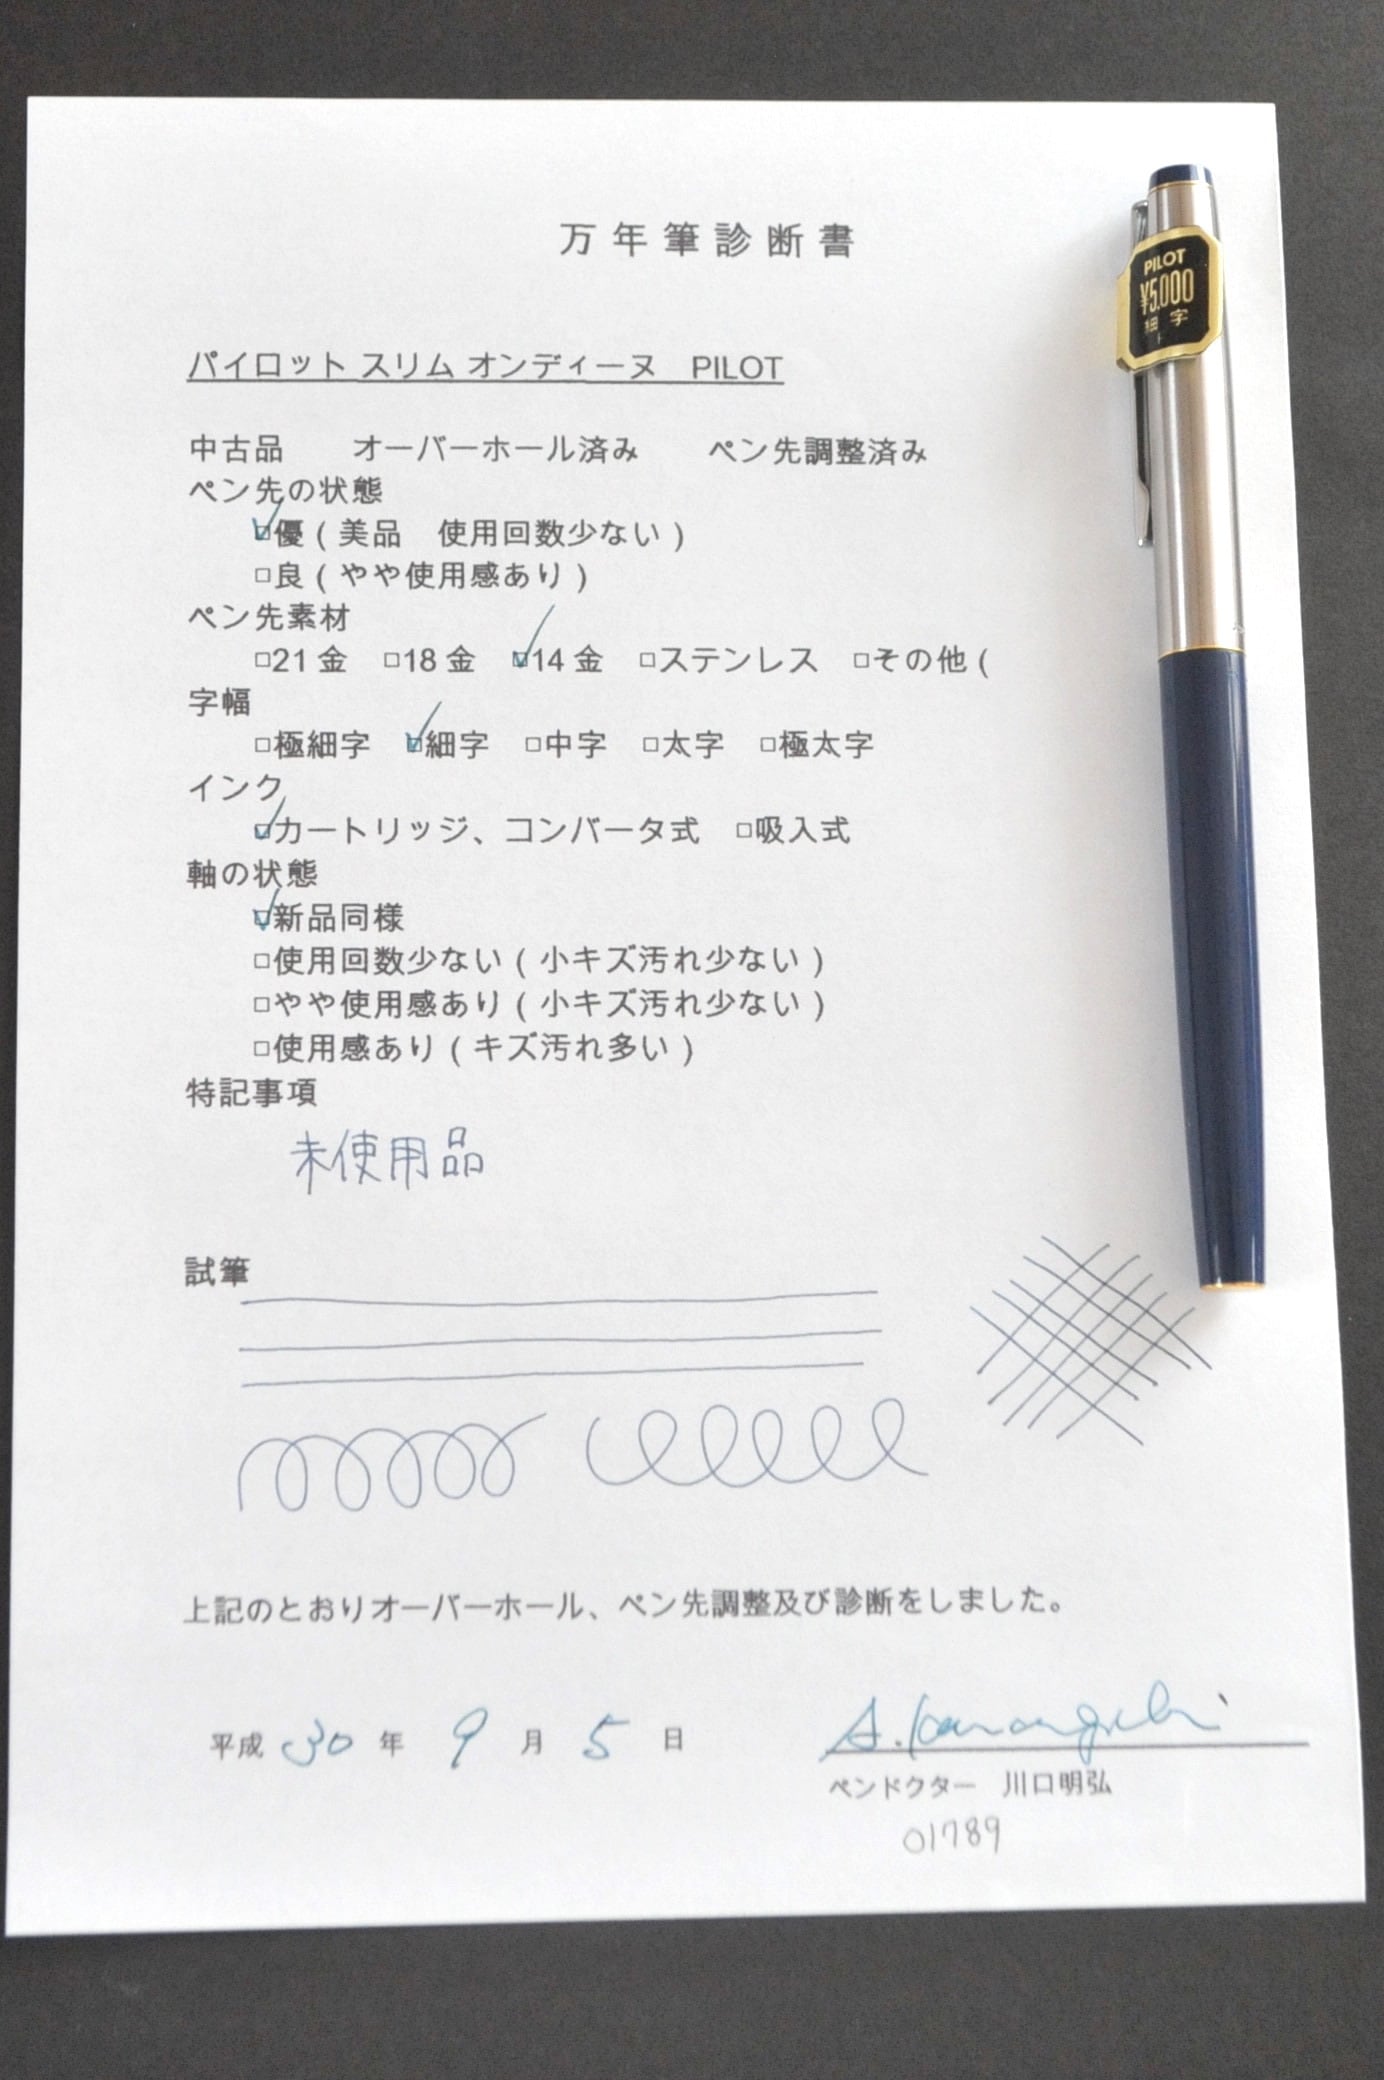 万年筆診断書
パイロット スリム オンディーヌ　PILOT
中古品　オーバーホール済み　ペン先調整済み
ペン先の状態
☑優（美品　使用回数少ない）
□良（やや使用感あり）
ペン先素材
□21金　□18金　☑14金　□ステンレス　□その他（
字幅
□極細字　☑細字　□中字　□太字　□極太字
インク
☑カートリッジ、コンバータ式　□吸入式
軸の状態
☑新品同様
□使用回数少ない（小キズ汚れ少ない）
□やや使用感あり（小キズ汚れ少ない）
□使用感あり（キズ汚れ多い）
特記事項
未使用品
試筆
上記のとおりオーバーホール、ペン先調整及び診断をしました。
平成 30 年 9 月 5 日
A. Kawaguchi
ペンドクター　川口明弘
01789
PILOT
¥5,000
細字